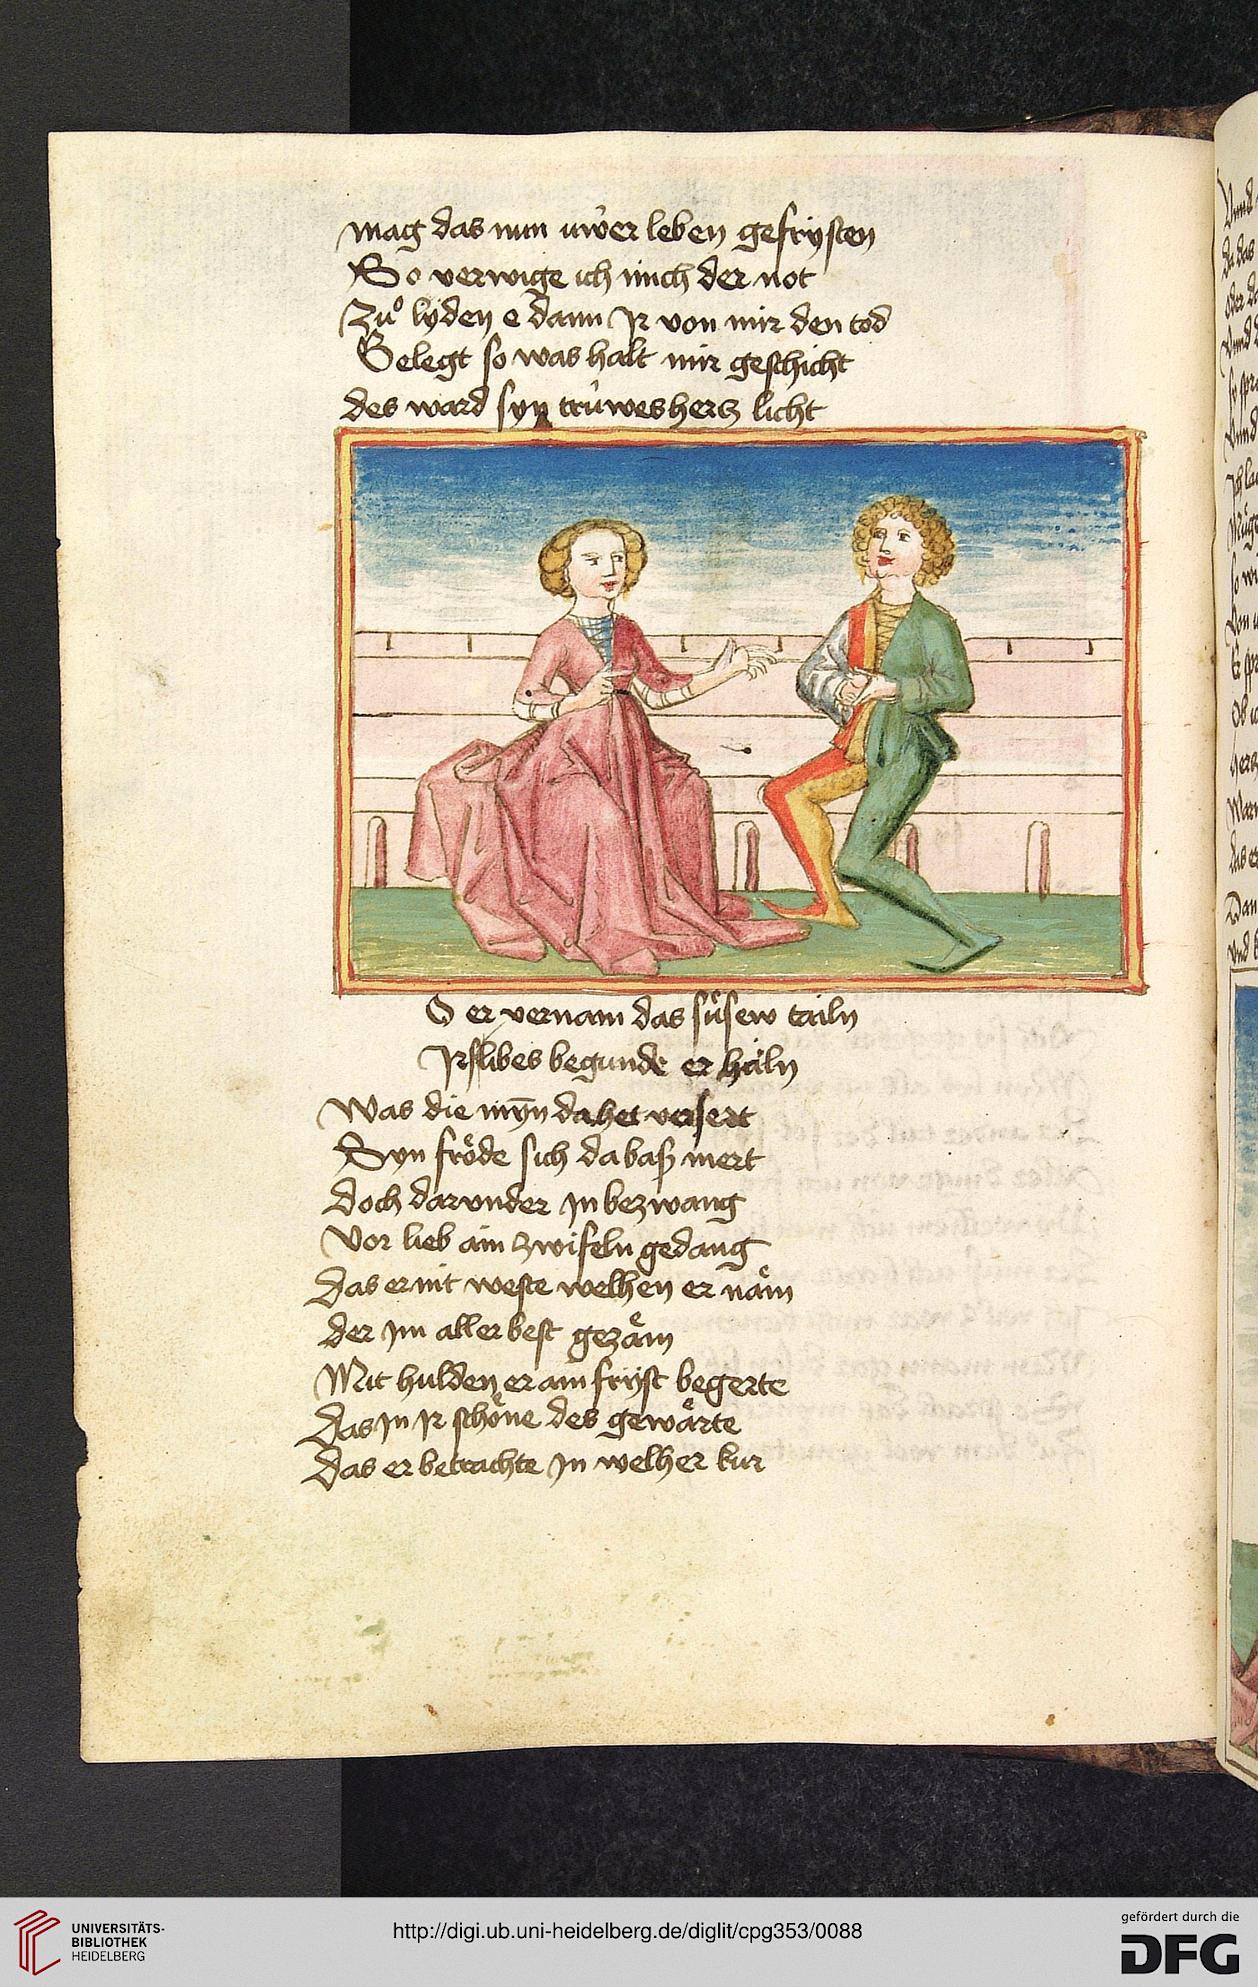 mag das nun uwer leben gefrysten
So verwige ich mich der not
Zuͦ lyden e dann Jr von mir den tod
Gelegt so was halt mir geschicht
des ward syn trúwes hertz licht
O er vernam das suͤsew tailn
Jrs libes begunde er hailn
Was die myn̄ da het versert
Syn froͤde sich da baß mert
Doch darvnder jn bezwang
Vor lieb ain zwifeln gedang
Das er nit weste welhen er naͤm
der jm aller best gezaͤm
Mit hulden er ain fryst begerte
Das jn jr schoͤne des gewaͤrte
Das er betrachte jn welher kur
UNIVERSITÄTS-
BIBLIOTHEK
HEIDELBERG
http://digi.ub.uni-heidelberg.de/diglit/cpg353/0088
gefördert durch die
DFG